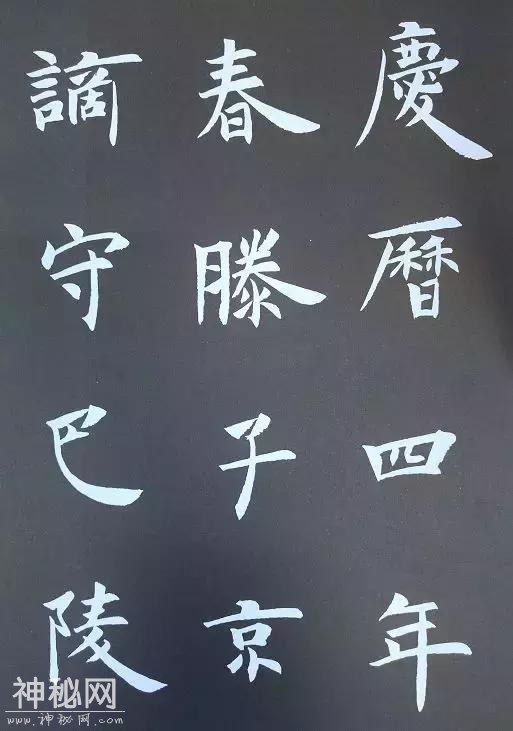 慶曆四年
春滕子京
謫守巴陵
神秘网
www.神秘网.com